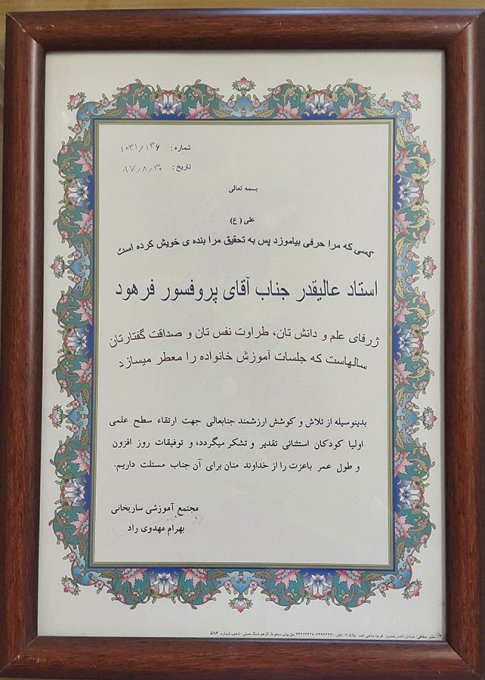 شماره : ۱۰۳۱/۱۳۶
تاریخ : ۸۷،۸،۳۰
بسمه تعالی
علی (ع)
کسی که مرا حرفی بیاموزد پس به تحقیق مرا بنده ی خویش کرده است
استاد عالیقدر جناب آقای پروفسور فرهود
ژرفای علم و دانش تان، طراوت نفس تان و صداقت گفتارتان
سالهاست که جلسات آموزش خانواده را معطر میسازد
بدینوسیله از تلاش و کوشش ارزشمند جنابعالی جهت ارتقاء سطح علمی
اولیا کودکان استثنائی تقدیر و تشکر میگردد، و توفیقات روز افزون
و طول عمر باعزت را از خداوند منان برای آن جناب مسئلت داریم.
مجتمع آموزشی ساریخانی
بهرام مهدوی راد